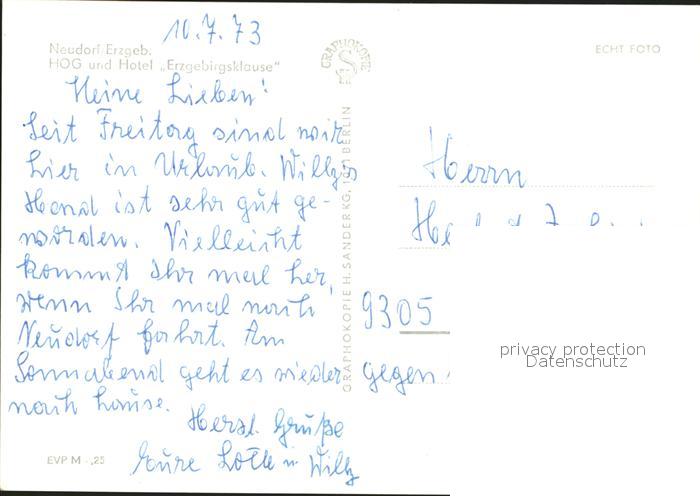 10.7.73
Neudorf Erzgeb.
HOG und Hotel „Erzgebirgsklause"
ECHT FOTO
Meine Lieben!
Seit Freitag sind wir
hier in Urlaub. Willys
Hand ist sehr gut ge-
worden. Vielleicht
kommt Ihr mal her,
wenn Ihr mal nach
Neudorf fahrt. Am
Sonnabend geht es wieder gegen
nach hause.
Herzl. Grüße
Eure Lotte u Willy
EVP M -,25
GRAPHOKOPIE
GRAPHOKOPIE H. SANDER KG, 1071 BERLIN
Herrn
9305
privacy protection
Datenschutz